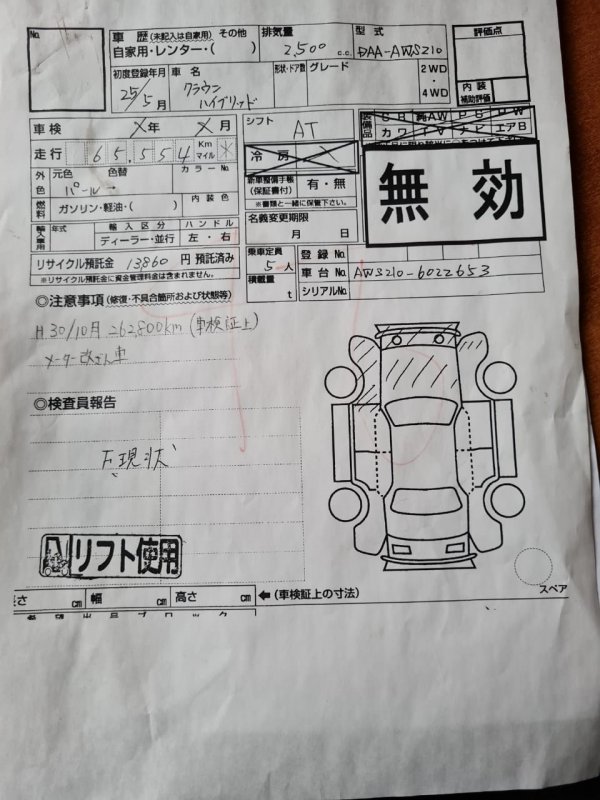 No.
車 歴 (未記入は自家用) その他
自家用・レンター・( )
排気量
2,500 c.c.
型 式
DAA-AWS210
評価点
初度登録年月
25/5月
車 名
クラウン
ハイブリッド
形状・ドア数
グレード
2WD
・
4WD
内 装
補助評価
車 検 ×年 ×月
シフト
AT
装備品
S R 純AW P S P W
カワ T V ナビ エアB
走 行 65,554 Km
マイル
冷 房
無 効
外色
元色 色替
カラーNo.
パール→
新車整備手帳
(保証書付)
有・無
※書類と一緒に保管下さい。
燃料
ガソリン・軽油・( )
内 装 色
名義変更期限
月 日
輸入車用
年式
輸 入 区 分
ハ ン ド ル
ディーラー・並行
左 ・ 右
リサイクル預託金 13860 円 預託済み
※リサイクル預託金に資金管理料金は含まれません。
乗車定員
5人
積載量
t
登 録 No.
車 台 No. AWS210-6022653
シリアルNo.
◎注意事項 (修復・不具合箇所および状態等)
H30/10月 262,800km (車検証上)
メーター改ざん車
◎検査員報告
下現状
リフト使用
長さ cm 幅 cm 高さ cm ←(車検証上の寸法)
スペア
希 望 出 品 ブ ロ ッ ク